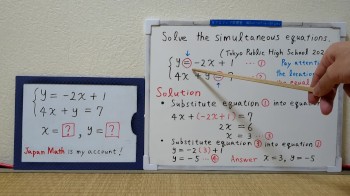 y = -2x + 1
4x + y = 7
x = ?, y = ?
Japan Math is my account!
Solve the simultaneous equations.
(Tokyo Public High School 202
y = -2x + 1 … ① Pay attenti
4x + y = 7 the locatio
Solution
• Substitute equation ① into equation
4x + (-2x + 1) = 7
2x = 6
x = 3 … ③
• Substitute equation ③ into equation ①
y = -2(3) + 1
y = -5 … ④ Answer x = 3, y = -5